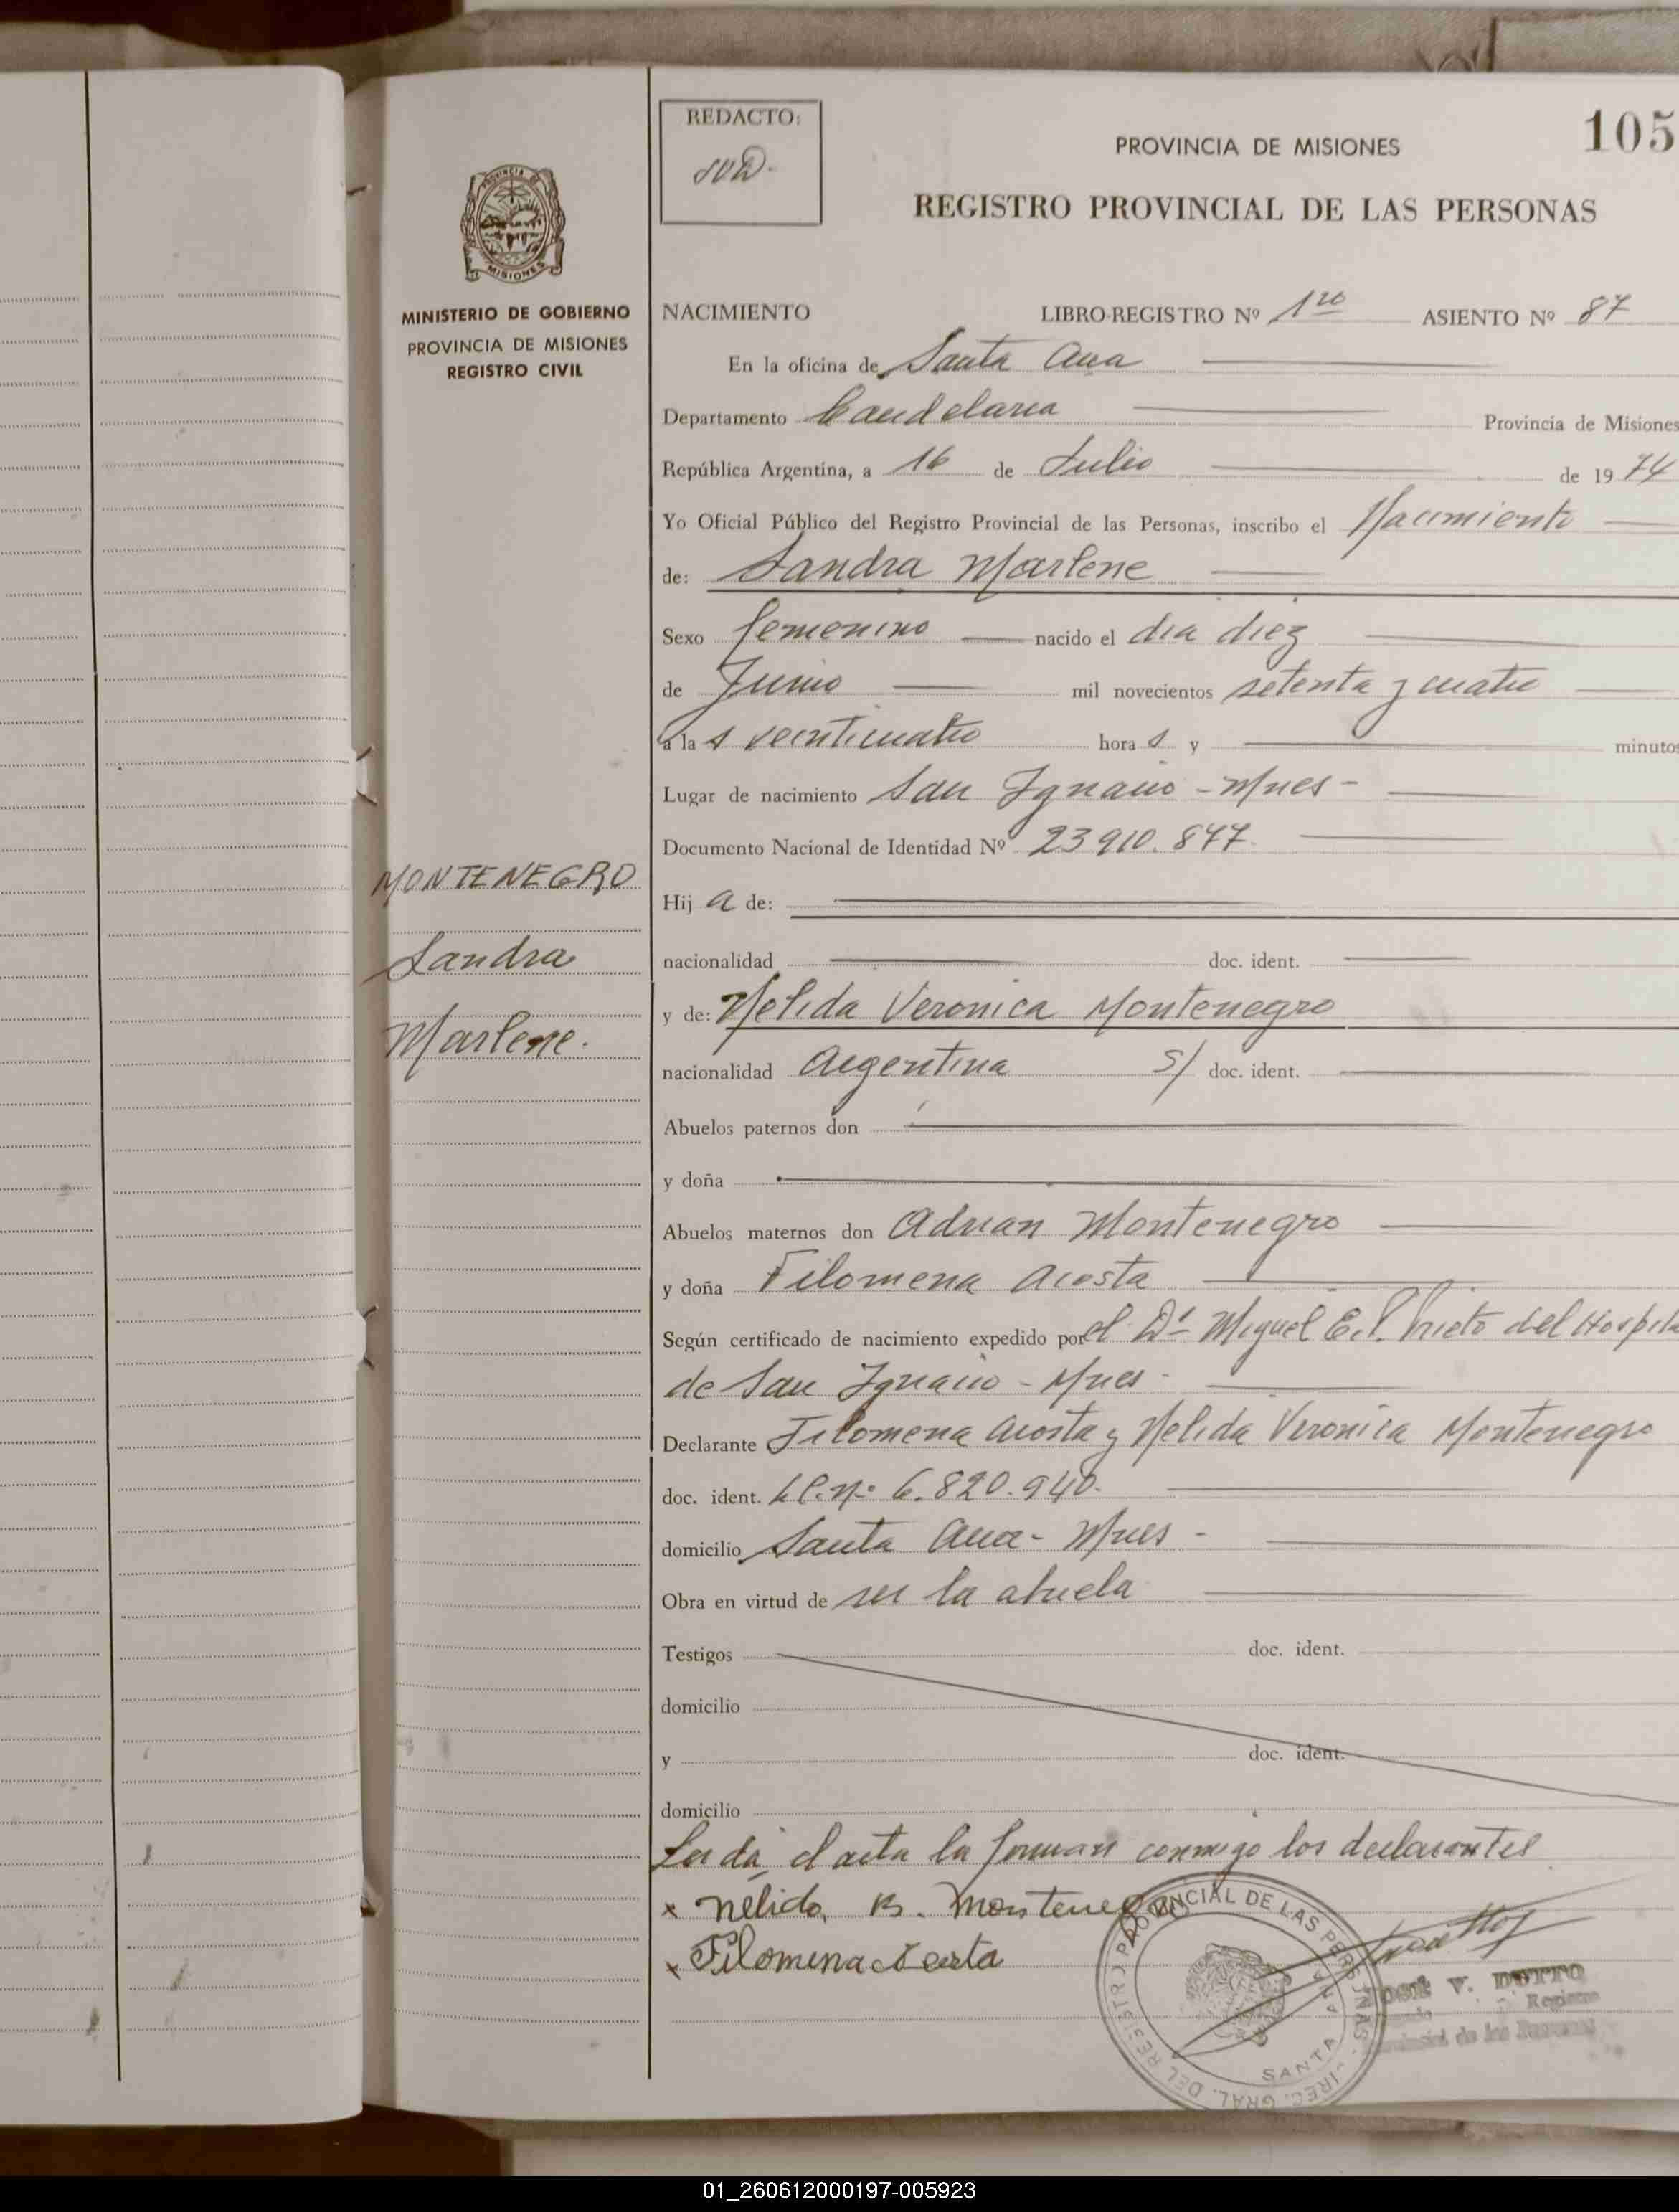 REDACTO:
105
PROVINCIA DE MISIONES
REGISTRO PROVINCIAL DE LAS PERSONAS
PROVINCIA DE
MISIONES
MINISTERIO DE GOBIERNO
PROVINCIA DE MISIONES
REGISTRO CIVIL
NACIMIENTO LIBRO-REGISTRO Nº 1ro ASIENTO Nº 87
En la oficina de Santa Ana
Departamento Candelaria Provincia de Misiones
República Argentina, a 16 de Julio de 1974
Yo Oficial Público del Registro Provincial de las Personas, inscribo el Nacimiento
de: Sandra Marlene
Sexo femenino nacido el dia diez
de Junio mil novecientos setenta y cuatro
a las veinticuatro horas y minutos
Lugar de nacimiento San Ignacio - Mnes -
Documento Nacional de Identidad Nº 23 910.847
MONTENEGRO
Sandra
Marlene.
Hija de:
nacionalidad doc. ident.
y de: Nelida Veronica Montenegro
nacionalidad Argentina S/ doc. ident.
Abuelos paternos don
y doña
Abuelos maternos don Adrian Montenegro
y doña Filomena Acosta
Según certificado de nacimiento expedido por el Dr Miguel E. P. Prieto del Hospita
de San Ignacio - Mnes -
Declarante Filomena Acosta y Nelida Veronica Montenegro
doc. ident. L C. nº 6.820.940.
domicilio Santa Ana - Mnes -
Obra en virtud de ser la abuela
Testigos doc. ident.
domicilio
y doc. ident.
domicilio
Leida el acta la firman conmigo los declarantes
x Nélida B. Montenegro
x Filomena Acosta
DIREC. GRAL. DEL REGISTRO PROVINCIAL DE LAS PERSONAS
SANTA ANA
JOSÉ V. DUTTO
Registro
Provincial de las Personas
01_260612000197-005923